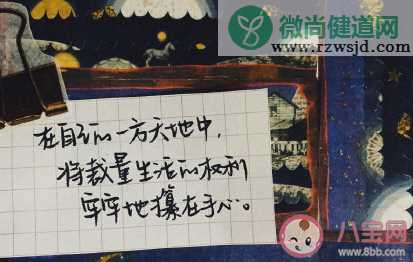 微尚健道网
www.rzwsjd.com
在自己的一方天地中,
将裁量生活的权利
牢牢地攥在手心。
八宝网
www.8bb.com